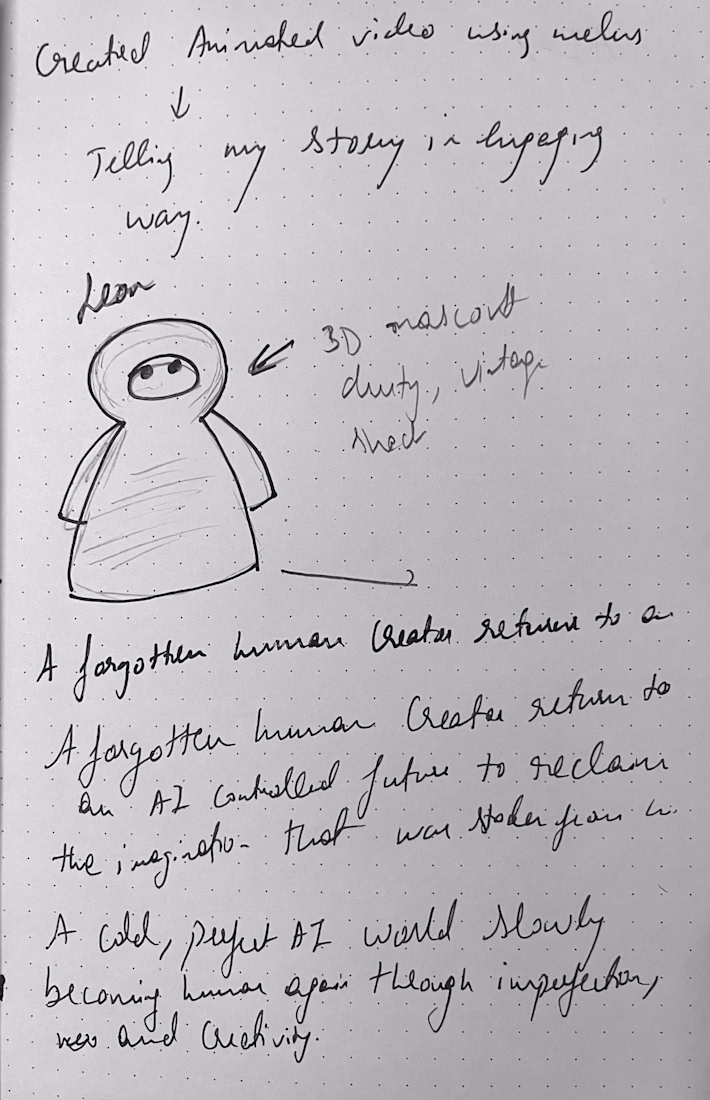 Created Animated video using
Telling my story in Engaging
way.
Leon
3D mascott
dusty, vintage
A forgotten human Creator returns to a
A forgotten human Creator return to
an AI controlled future to reclaim
the imagination that was stolen from
A cold, perfect AI world slowly
becoming human again through imperfection,
and Creativity.